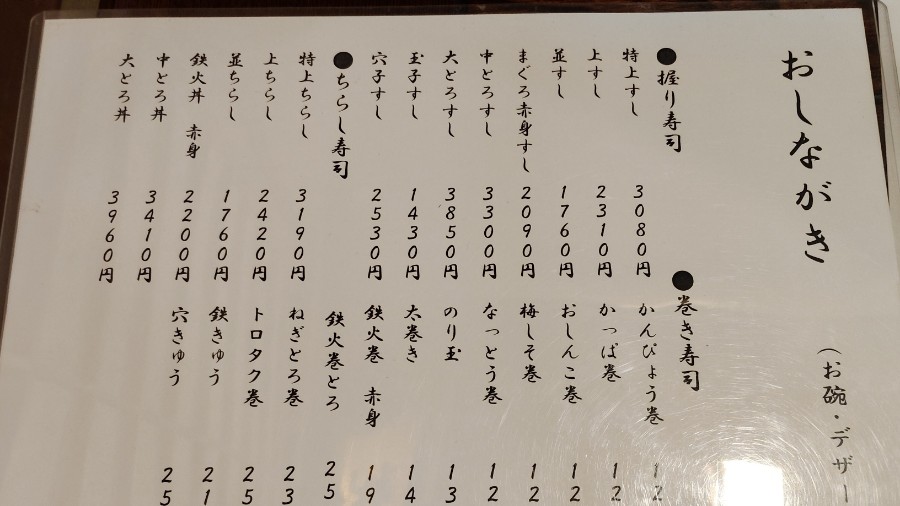 おしながき
(お碗・デザー
●握り寿司
特上すし 3080円
上すし 2310円
並すし 1760円
まぐろ赤身すし 2090円
中とろすし 3300円
大とろすし 3850円
玉子すし 1430円
穴子すし 2530円
●ちらし寿司
特上ちらし 3190円
上ちらし 2420円
並ちらし 1760円
鉄火丼 赤身 2200円
中とろ丼 3410円
大とろ丼 3960円
●巻き寿司
かんぴょう巻 12
かっぱ巻 12
おしんこ巻 12
梅しそ巻 12
なっとう巻 12
のり玉 13
太巻き 14
鉄火巻 赤身 19
鉄火巻とろ 25
ねぎとろ巻 23
トロタク巻 25
鉄きゅう 21
穴きゅう 25